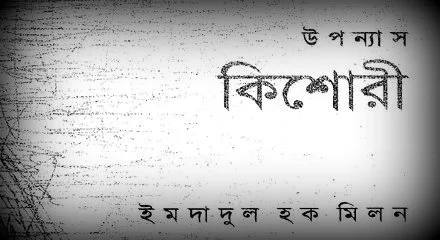 উপন্যাস
কিশোরী
ইমদাদুল হক মিলন